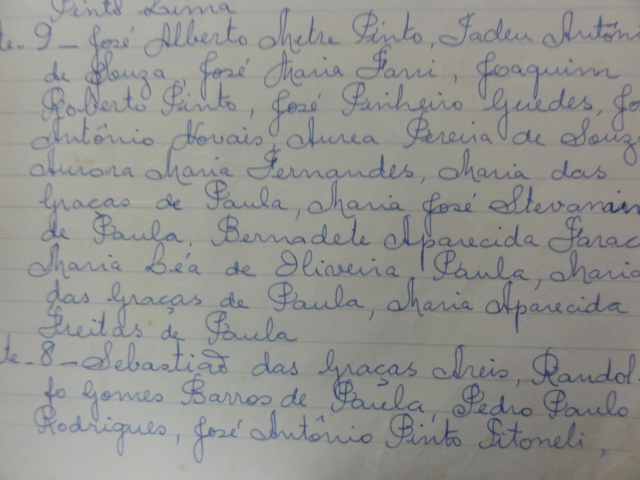 Pinto Lima
te-9- José Alberto Metre Pinto, Tadeu Antôni
de Souza, José Maria Farri, Joaquim
Roberto Pinto, José Pinheiro Guedes, Jo
Antônio Novais, Aurea Pereira de Souz
Aurora Maria Fernandes, Maria das
Graças de Paula, Maria José Stevanin
de Paula, Bernadete Aparecida Farac
Maria Léa de Oliveira Paula, Maria
das Graças de Paula, Maria Aparecida
Freitas de Paula
te-8- Sebastião das Graças Areis, Randol-
fo Gomes Barros de Paula, Pedro Paulo
Rodrigues, José Antônio Pinto Sitoneli,